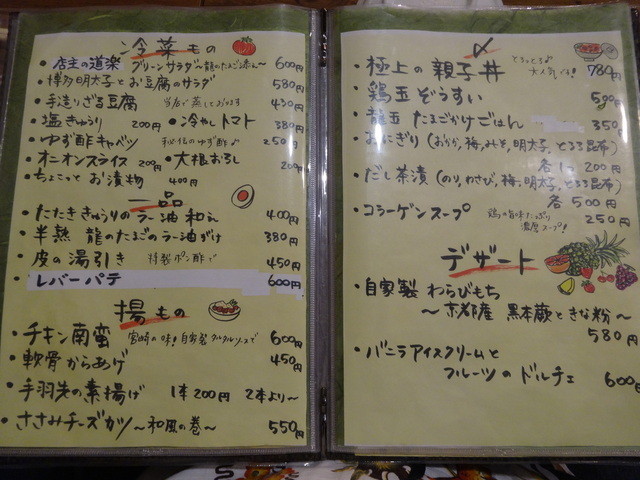 冷菜もの
・店主の道楽 グリーンサラダ〜龍のたまご添え〜 600円
・博多明太子とお豆腐のサラダ 580円
・手造りざる豆腐 当店で蒸しております 430円
・塩きゅうり 200円 ・冷やしトマト 380円
・ゆず酢キャベツ 秘伝のゆず酢♪ 250円
・オニオンスライス 200円 ・大根おろし 200円
・ちょこっとお漬物 400円
一品
・たたききゅうりのラー油和え 400円
・半熟 龍のたまごのラー油がけ 380円
・皮の湯引き 特製ポン酢で 450円
・レバーパテ 600円
揚もの
・チキン南蛮 宮崎の味!自家製タルタルソースで 600円
・軟骨からあげ 450円
・手羽先の素揚げ 1本200円 2本より〜
・ささみチーズカツ〜和風の巻〜 550円
〆
・極上の親子丼 とろっとろ♪大人気です! 780円
・鶏玉ぞうすい 590円
・龍玉 たまごかけごはん 350円
・おにぎり(おかか,梅,みそ,明太子,とろろ昆布)
各1コ 200円
・だし茶漬(のり,わさび,梅,明太子,とろろ昆布)
各500円
・コラーゲンスープ 鶏の旨味たっぷり濃厚スープ! 250円
デザート
・自家製 わらびもち
〜京都産 黒本蕨ときな粉〜
580円
・バニラアイスクリームと
フルーツのドルチェ 600円